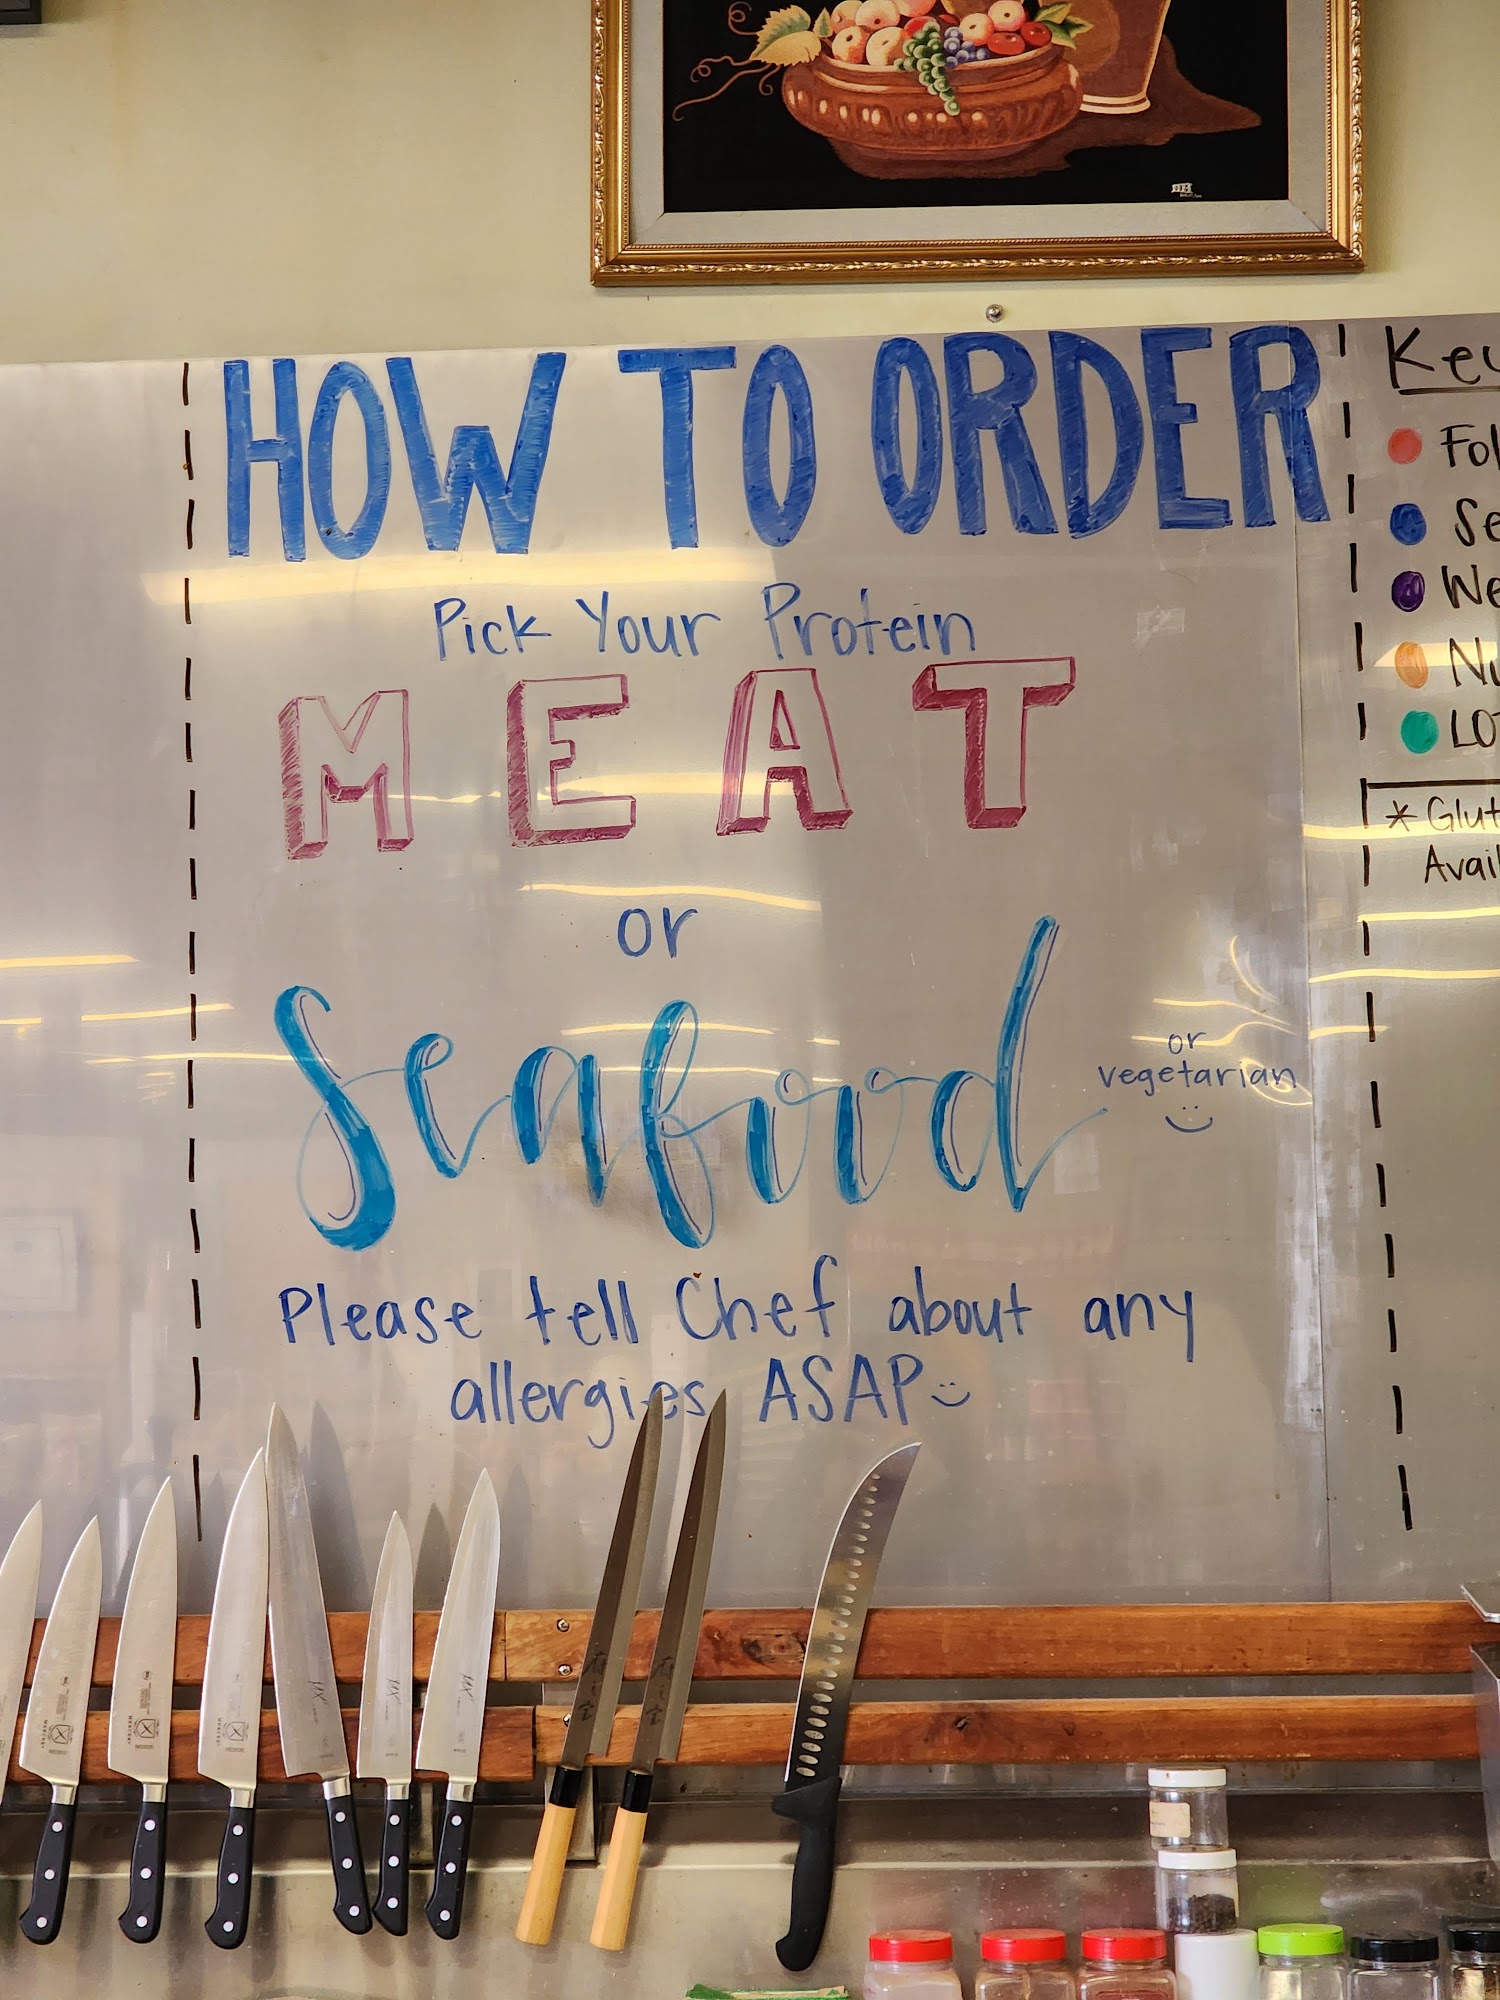 HOW TO ORDER
Pick Your Protein
MEAT
or
Seafood
or
vegetarian
Please tell Chef about any
allergies ASAP
Key
* Glut
Avail